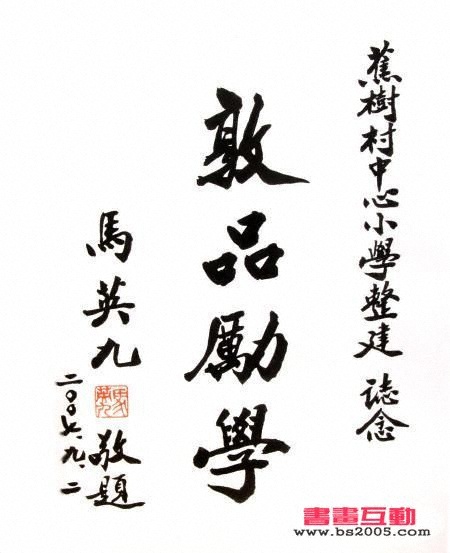 蕉樹村中心小學整建 誌念
敦品勵學
馬英九 敬題
馬英九
二〇〇六.九.二
書畫互動
www.bs2005.com